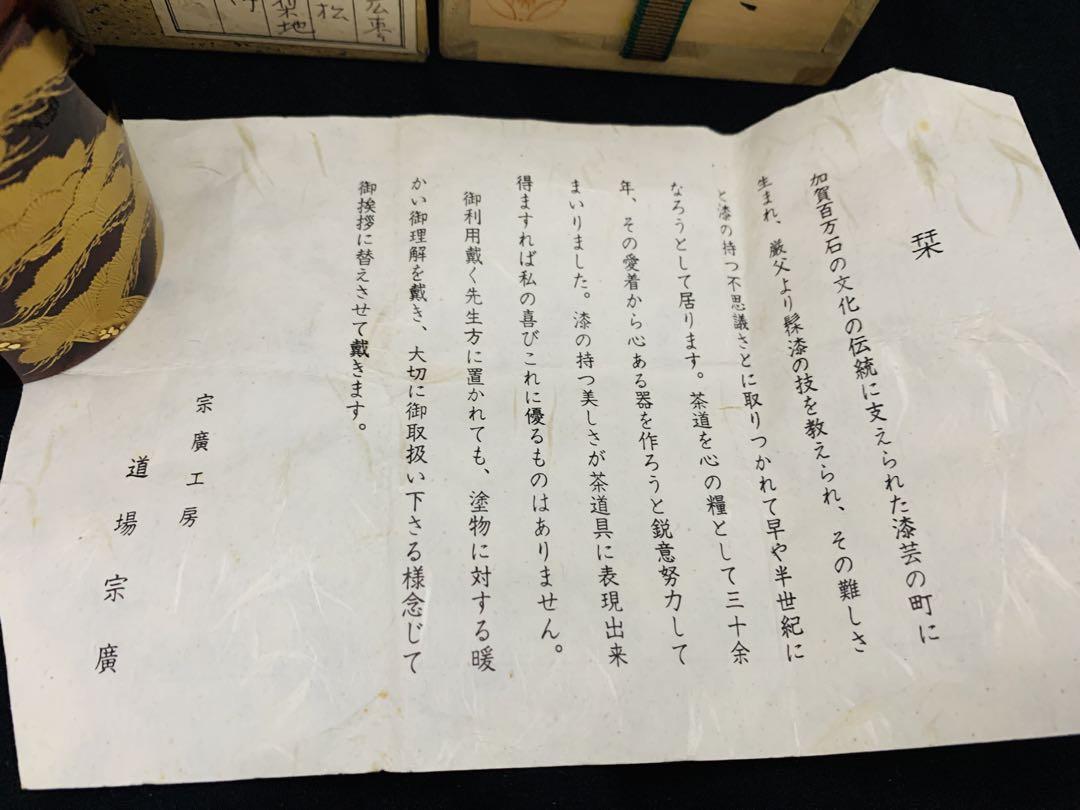 栞
加賀百万石の文化の伝統に支えられた漆芸の町に
生まれ、厳父より髹漆の技を教えられ、その難しさ
と漆の持つ不思議さとに取りつかれて早や半世紀に
なろうとして居ります。茶道を心の糧として三十余
年、その愛着から心ある器を作ろうと鋭意努力して
まいりました。漆の持つ美しさが茶道具に表現出来
得ますれば私の喜びこれに優るものはありません。
御利用戴く先生方に置かれても、塗物に対する暖
かい御理解を戴き、大切に御取扱い下さる様念じて
御挨拶に替えさせて戴きます。
宗廣工房
道場宗廣
松
梨地